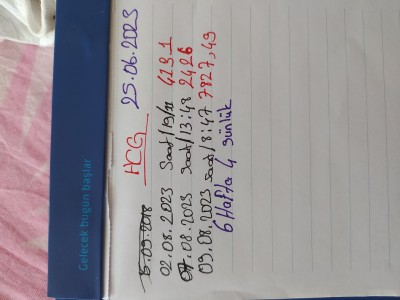 Gelecek bugün başlar
HCG 25.06.2023
02.08.2023 Saat/19/11 423.1
07.08.2023 Saat/13:48 2426
09.08.2023 saat/8:47 7827,49
6 Hafta 4 günlük